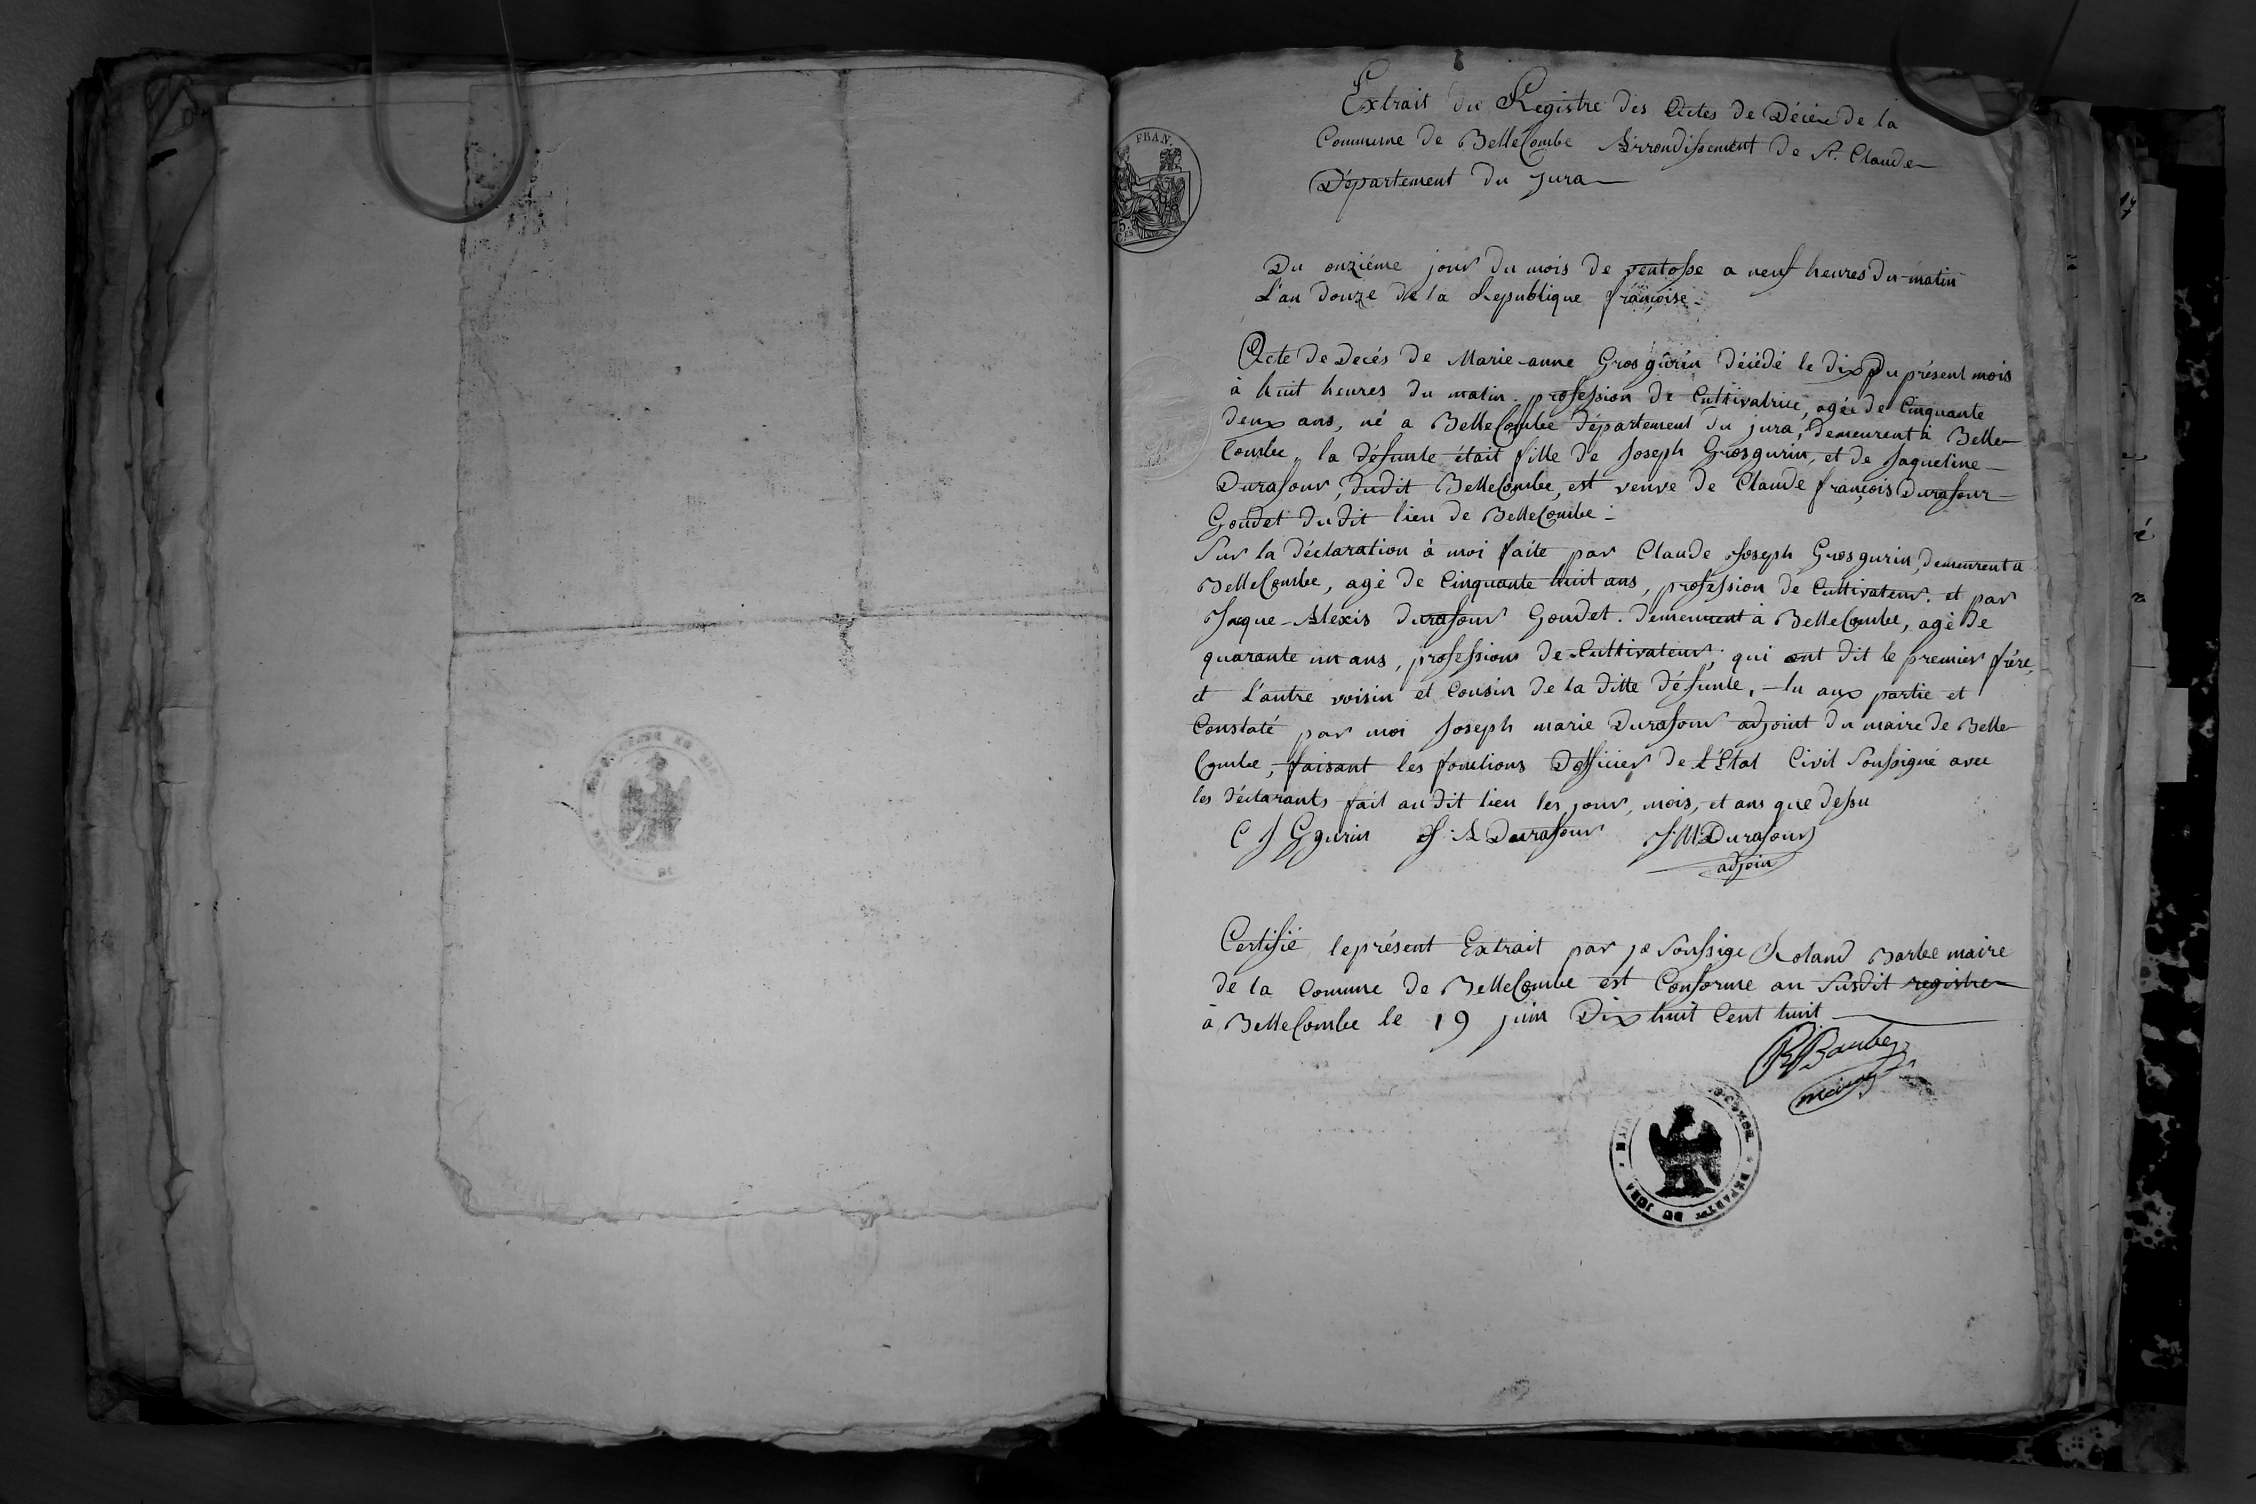 Extrait du Registre des Actes de Décès de la
Commune de BelleCombe Arrondissement de St. Claude
Département du Jura
FRAN.
Du onziéme jour du mois de ventosse a neuf heures du matin
L'an douze de la Republique françoise.
Acte de Decés de Marie-anne Grosgurin décédé le dix du présent mois
à huit heures du matin. profession de Cultivatrice, agée de Cinquante
deux ans, né a BelleCombe département du jura, demeurent à Belle-
Combe, la défunte était fille de Joseph Grosgurin, et de Jaqueline
Durafour, dudit BelleCombe, est veuve de Claude françois Durafour
Goudet du dit lieu de BelleCombe.
Sur la déclaration à moi faite par Claude Joseph Grosgurin, demeurent a
BelleCombe, agé de Cinquante huit ans, profession de Cultivateur. et par
Jaque-Alexis durafour Goudet. demeurent à BelleCombe, agé de
quarante un ans, profession de Cultivateur, qui ont dit le premier frére,
et l'autre voisin et Cousin de la ditte défunte, lu aux partie et
Constaté par moi Joseph marie Durafour adjoint du maire de Belle
Combe, faisant les fonctions Dofficier de l'Etat Civil Soussigné avec
les déclarants fait au dit lieu les jour, mois, et ans que dessu
C J Ggurin J. A Durafour J. M. Durafour
adjoin
Certifié le présent Extrait par je soussige Roland Barbe maire
de la Comune de BelleCombe est Conforme au Susdit registre
à BelleCombe le 19 juin Dix huit Cent huit
R Barbe
maire
DÉPARTnt DU JURA